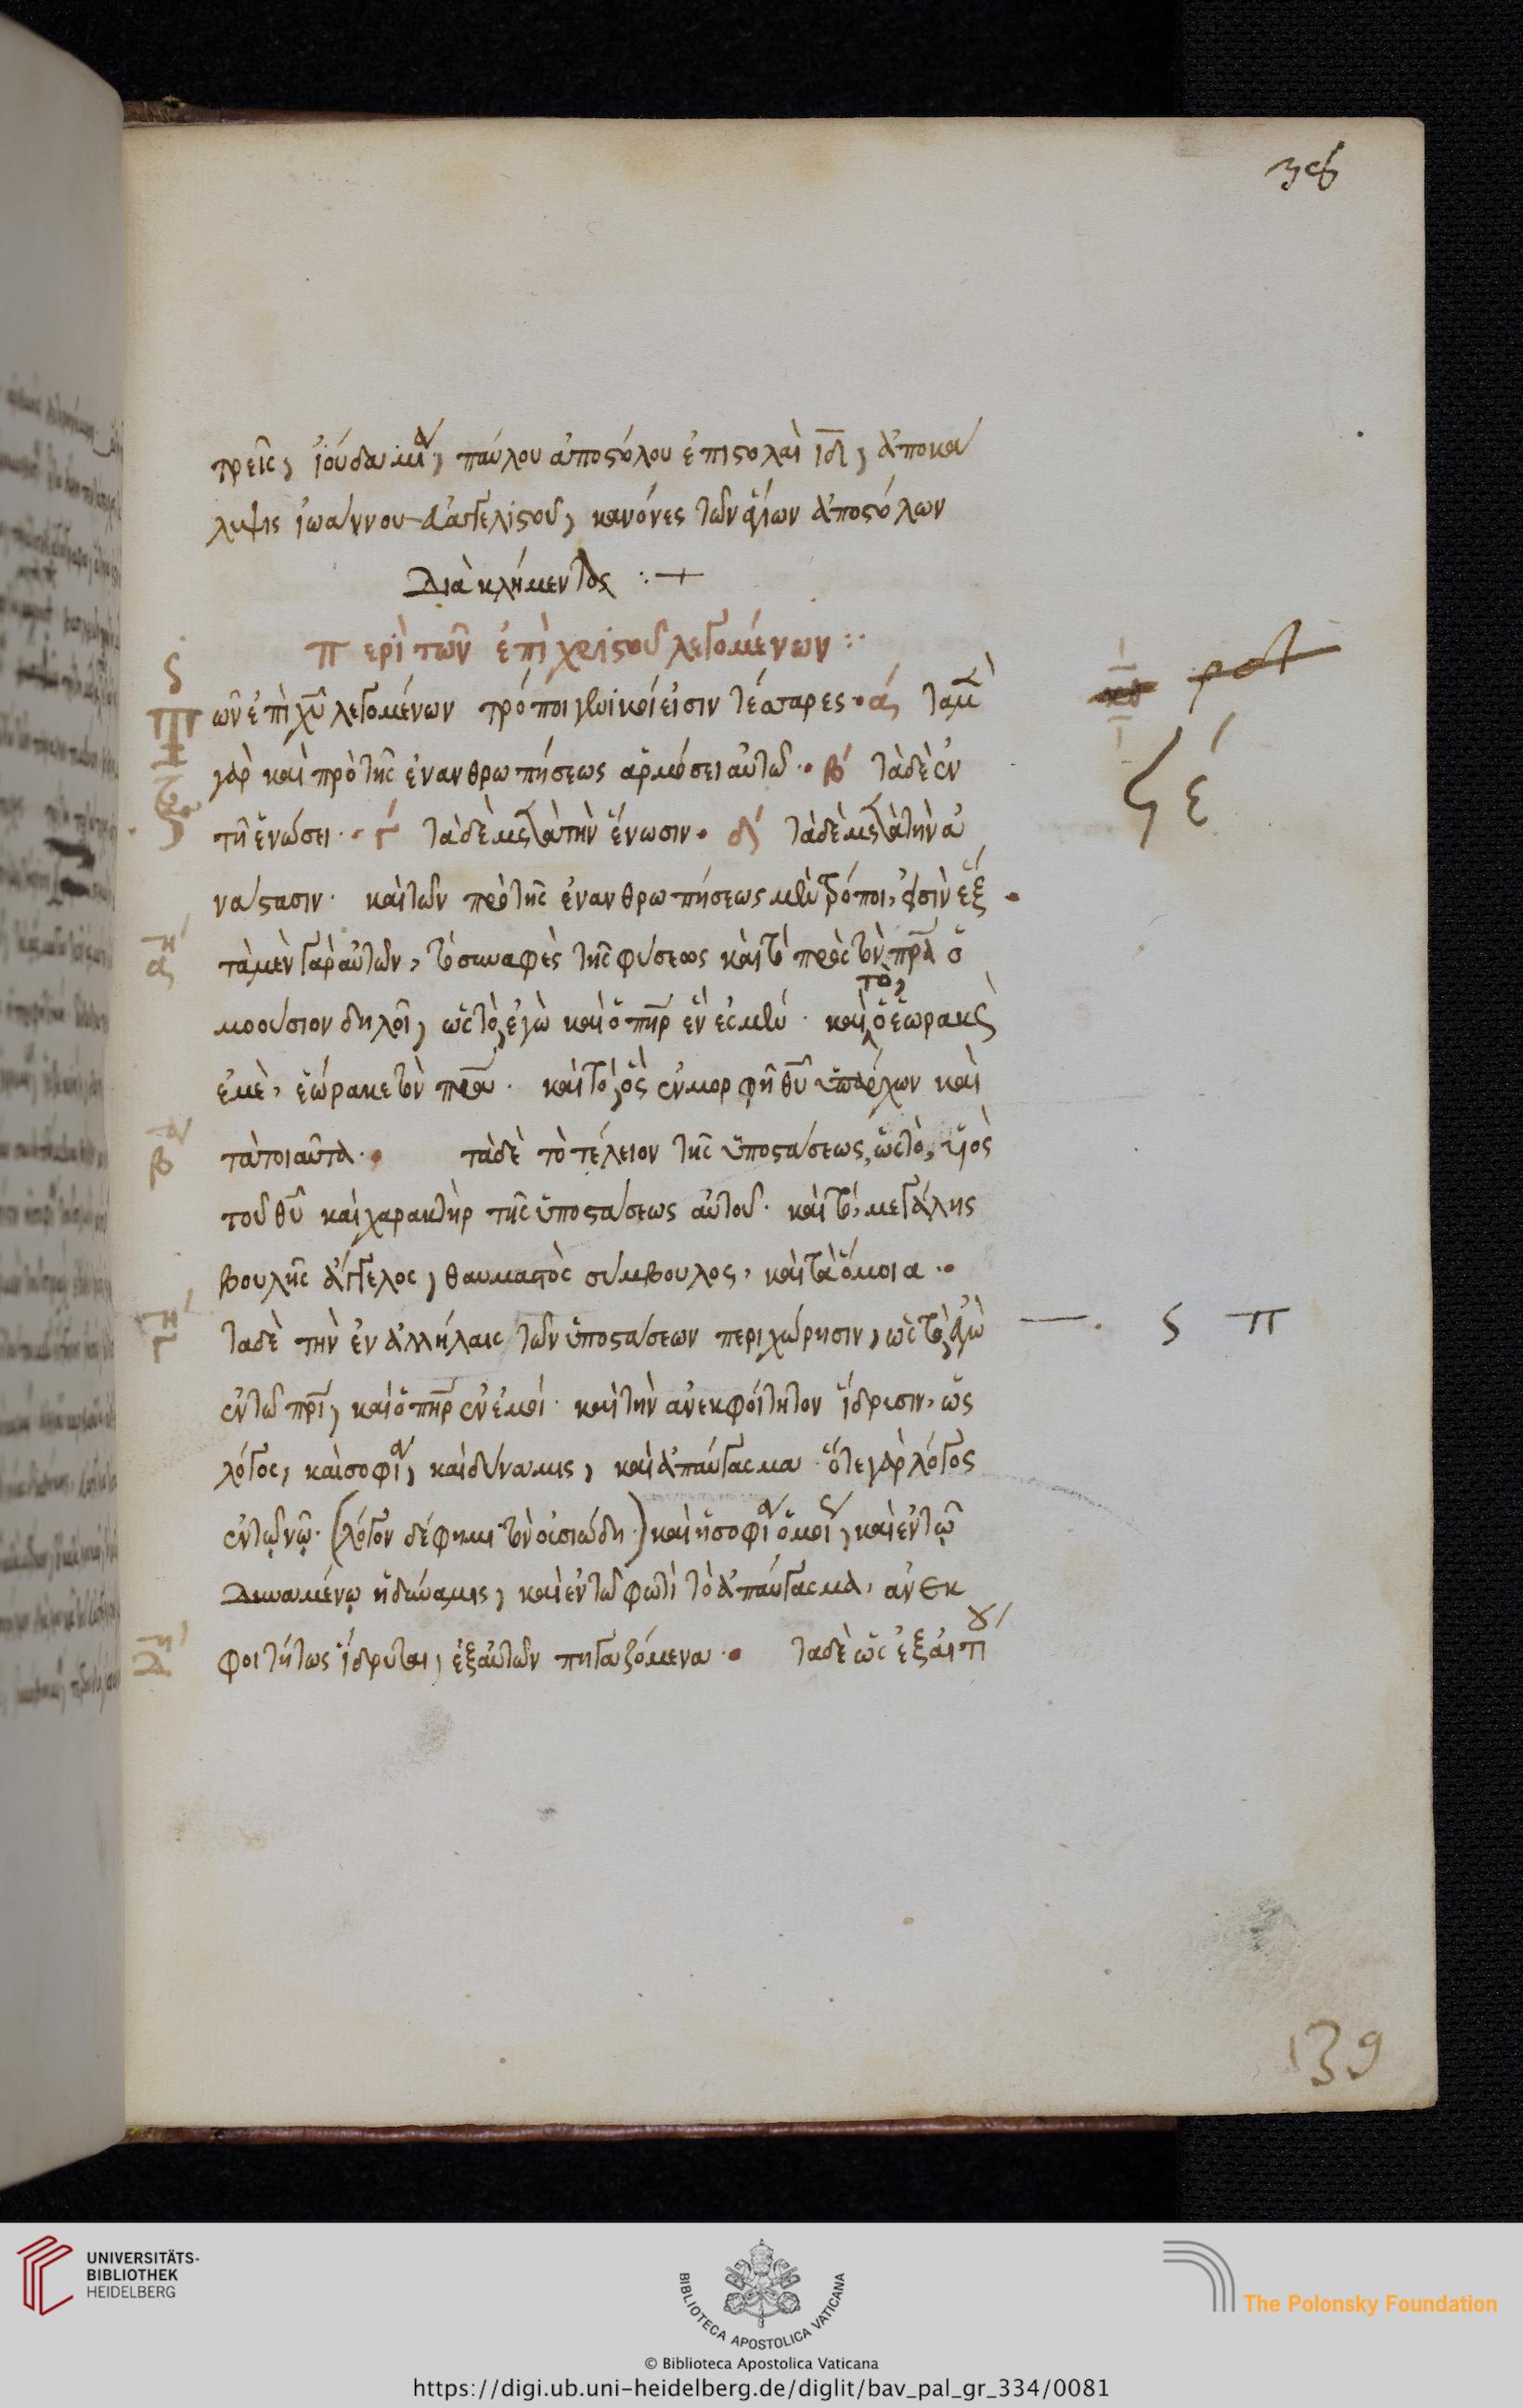 τρεῖς, ἰούδα μία, παύλου ἀποστόλου ἐπιστολαὶ ιδ, ἀποκά
λυψις ἰωάννου εὐαγγελιστοῦ, κανόνες τῶν ἁγίων ἀποστόλων
διὰ κλήμεντος :+
περὶ τῶν ἐπὶ χριστοῦ λεγομένων :·
ῶν ἐπὶ χυ λεγομένων τρόποι γενικοί εἰσιν τέσσαρες · α τὰ μὲν
γὰρ καὶ πρὸ τῆς ἐνανθρωπήσεως ἁρμόσει αὐτῶ · β τὰ δὲ ἐν
τῆ ἑνώσει · γ τὰ δὲ μετὰ τὴν ἕνωσιν · δ τὰ δὲ μετὰ τὴν ἀ
νάστασιν · καὶ τῶν πρὸ τῆς ἐνανθρωπήσεως μὲν τρόποι, εἰσὶν ἕξ ·
τὰ μὲν γὰρ αὐτῶν, τὸ συναφὲς τῆς φύσεως καὶ τὸ πρὸς τὸν πρα ὁ
μοούσιον δηλοῖ, ὡς τὸ, ἐγὼ καὶ ὁ πηρ ἕν ἐσμεν · καὶ τὸ, ὁ ἑωρακὼς
ἐμὲ, ἑώρακε τὸν πρα · καὶ τὸ, ὃς ἐν μορφῆ θυ ὑπάρχων καὶ
τὰ τοιαῦτα · τὰ δὲ τὸ τέλειον τῆς ὑποστάσεως, ὡς τὸ, υἱὸς
τοῦ θυ καὶ χαρακτὴρ τῆς ὑποστάσεως αὐτοῦ · καὶ τὸ, μεγάλης
βουλῆς ἄγγελος, θαυμαστὸς σύμβουλος, καὶ τὰ ὅμοια ·
τὰ δὲ τὴν ἐν ἀλλήλαις τῶν ὑποστάσεων περιχώρησιν, ὡς τὸ, ἐγὼ
ἐν τῶ πρι, καὶ ὁ πηρ ἐν ἐμοί · καὶ τὴν ἀνεκφοίτητον ἵδρυσιν, ὡς
λόγος, καὶ σοφία, καὶ δύναμις, καὶ ἀπαύγασμα · ὅτε γὰρ λόγος
ἐν τῷ νῷ · (λόγον δέ φημι τὸν οὐσιώδη ·) καὶ ἡ σοφία ὁμοίως, καὶ ἐν τῷ
δυναμένῳ ἡ δύναμις, καὶ ἐν τῶ φωτὶ τὸ ἀπαύγασμα, ἀνεκ
φοιτήτως ἵδρυται, ἐξ αὐτῶν πηγαζόμενα · τὰ δὲ ὡς ἐξ αἰτίου
139
UNIVERSITÄTS-
BIBLIOTHEK
HEIDELBERG
BIBLIOTECA APOSTOLICA VATICANA
The Polonsky Foundation
© Biblioteca Apostolica Vaticana
https://digi.ub.uni-heidelberg.de/diglit/bav_pal_gr_334/0081